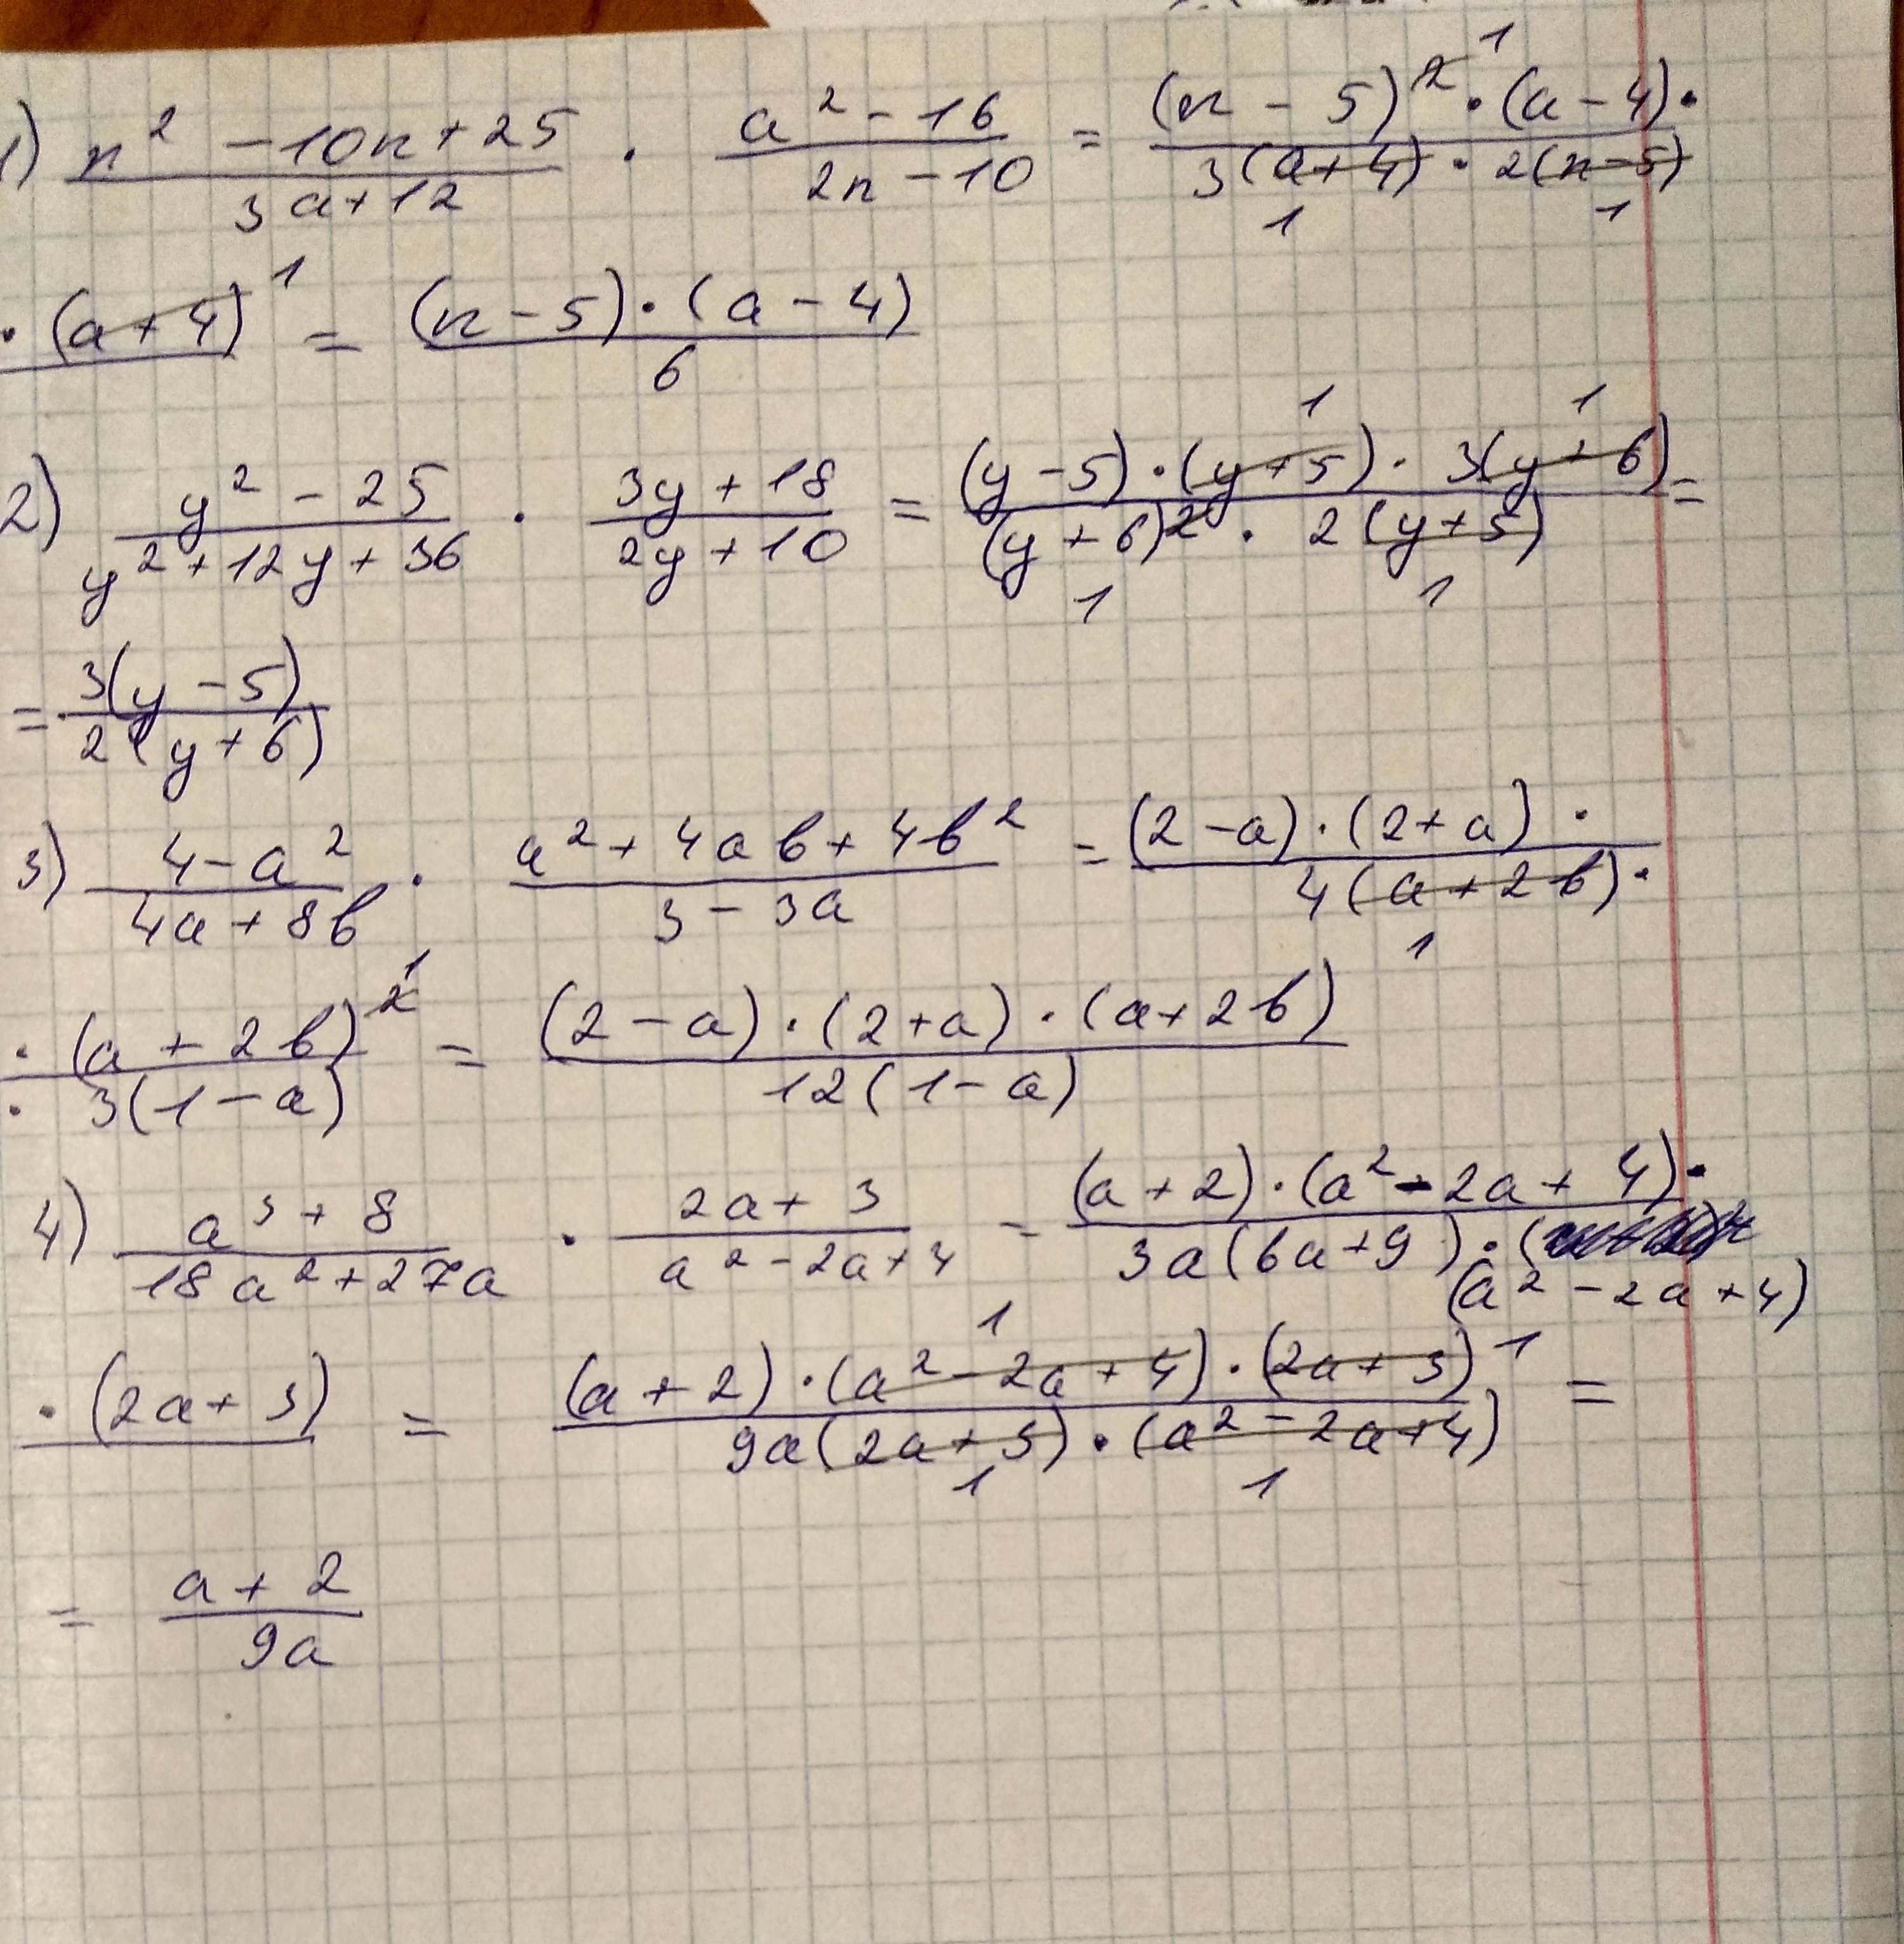 1) (n² - 10n + 25)/(3a + 12) · (a² - 16)/(2n - 10) = ((n - 5)²¹ · (a - 4) ·)/(3(a + 4) · 2(n - 5)) 1 1
· (a + 4) 1 = ((n - 5) · (a - 4))/6
2) (y² - 25)/(y² + 12y + 36) · (3y + 18)/(2y + 10) = ((y - 5) · (y + 5) · 3(y + 6))/((y + 6)² · 2(y + 5)) = 1 1 1 1
= 3(y - 5)/2(y + 6)
3) (4 - a²)/(4a + 8b) · (a² + 4ab + 4b²)/(3 - 3a) = ((2 - a) · (2 + a) ·)/(4(a + 2b) ·) 1
(· (a + 2b)²¹)/(· 3(1 - a)) = ((2 - a) · (2 + a) · (a + 2b))/(12(1 - a))
4) (a³ + 8)/(18a² + 27a) · (2a + 3)/(a² - 2a + 4) = ((a + 2) · (a² - 2a + 4) ·)/(3a(6a + 9) · (a² - 2a + 4))
· (2a + 3) = ((a + 2) · (a² - 2a + 4) · (2a + 3))/(9a(2a + 3) · (a² - 2a + 4)) = 1 1 1 1
= (a + 2)/9a